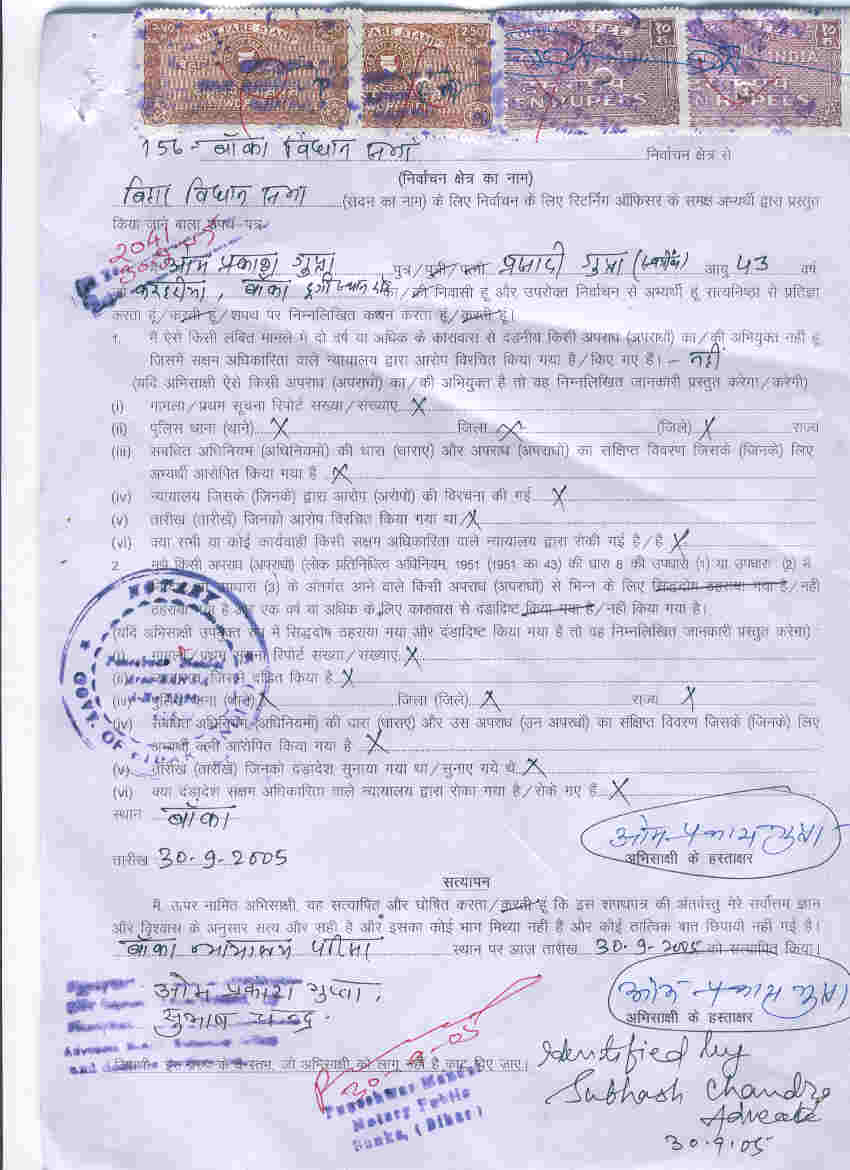 WELFARE STAMP WELFARE STAMP RUPEE INDIA
TEN RUPEES TEN RUPEES
156- बाँका विधान सभा निर्वाचन क्षेत्र से
(निर्वाचन क्षेत्र का नाम)
बिहार विधान सभा (सदन का नाम) के लिए निर्वाचन के लिए रिटर्निंग ऑफिसर के समक्ष अभ्यर्थी द्वारा प्रस्तुत
किया जाने वाला शपथ-पत्र
204
ओम प्रकाश गुप्ता पुत्र/पुत्री/पत्नी प्रसादी गुप्ता (स्वर्गीय) आयु 43 वर्ष
करहरीया, बाँका दुर्गा स्थान रोड का/की निवासी हूं और उपरोक्त निर्वाचन से अभ्यर्थी हूं सत्यनिष्ठा से प्रतिज्ञा
करता हूं/करती हूं/शपथ पर निम्नलिखित कथन करता हूं/करती हूं।
1. मैं ऐसे किसी लंबित मामले में दो वर्ष या अधिक के कारावास से दंडनीय किसी अपराध (अपराधों) का/की अभियुक्त नहीं हूं
जिसमें सक्षम अधिकारिता वाले न्यायालय द्वारा आरोप विरचित किया गया है/किए गए हैं। - नहीं
(यदि अभिसाक्षी ऐसे किसी अपराध (अपराधों) का/की अभियुक्त है तो वह निम्नलिखित जानकारी प्रस्तुत करेगा/करेगी)
(i) मामला/प्रथम सूचना रिपोर्ट संख्या/संख्याएं X
(ii) पुलिस थाना (थाने) X जिला X (जिले) X राज्य
(iii) संबंधित अधिनियम (अधिनियमों) की धारा (धाराएं) और अपराध (अपराधों) का संक्षिप्त विवरण जिसके (जिनके) लिए
अभ्यर्थी आरोपित किया गया है X
(iv) न्यायालय जिसके (जिनके) द्वारा आरोप (अरोपों) की विरचना की गई X
(v) तारीख (तारीखें) जिनको आरोप विरचित किया गया था X
(vi) क्या सभी या कोई कार्यवाही किसी सक्षम अधिकारिता वाले न्यायालय द्वारा रोकी गई है/है X
2. मुझे किसी अपराध (अपराधों) (लोक प्रतिनिधित्व अधिनियम, 1951 (1951 का 43) की धारा 8 की उपधारा (1) या उपधारा (2) में
उपधारा (3) के अंतर्गत आने वाले किसी अपराध (अपराधों) से भिन्न के लिए सिद्धदोष ठहराया गया है/नहीं
ठहराया गया है और एक वर्ष या अधिक के लिए कारावास से दंडादिष्ट किया गया है/नहीं किया गया है।
(यदि अभिसाक्षी उपर्युक्त रूप में सिद्धदोष ठहराया गया और दंडादिष्ट किया गया है तो वह निम्नलिखित जानकारी प्रस्तुत करेगा)
(i) मामला/प्रथम सूचना रिपोर्ट संख्या/संख्याएं X
(ii) न्यायालय जिसने दंडित किया है X
पुलिस थाना (थाने) X जिला (जिले) X राज्य X
(iv) संबंधित अधिनियम (अधिनियमों) की धारा (धाराएं) और उस अपराध (उन अपराधों) का संक्षिप्त विवरण जिसके (जिनके) लिए
अभ्यर्थी आरोपित किया गया है X
(v) तारीख (तारीखें) जिनको दंडादेश सुनाया गया था/सुनाए गये थे X
(vi) क्या दंडादेश सक्षम अधिकारिता वाले न्यायालय द्वारा रोका गया है/रोके गए हैं X
NOTARY
GOVT. OF
स्थान बाँका
ओम प्रकाश गुप्ता
तारीख 30.9.2005 अभिसाक्षी के हस्ताक्षर
सत्यापन
मैं, ऊपर नामित अभिसाक्षी, यह सत्यापित और घोषित करता/करती हूं कि इस शपथपत्र की अंतर्वस्तु मेरे सर्वोत्तम ज्ञान
और विश्वास के अनुसार सत्य और सही है और इसका कोई भाग मिथ्या नहीं है और कोई तात्विक बात छिपायी नहीं गई है।
बाँका न्यायालय परिसर स्थान पर आज तारीख 30.9.2005 को सत्यापित किया।
ओम प्रकाश गुप्ता
ओम प्रकाश गुप्ता
सुभाष चन्द्र
अभिसाक्षी के हस्ताक्षर
जो अभिसाक्षी को लागू नहीं है काट दिए जाएं।
30-9-05
Notary Public
Banka, (Bihar)
Identified by
Subhash Chandra
Advocate
30.9.05